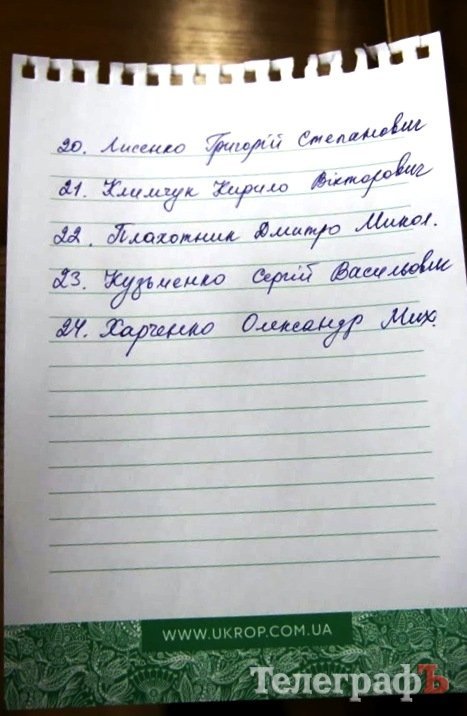 20. Лисенко Григорій Степанович
21. Климчук Кирило Вікторович
22. Плахотник Дмитро Микол.
23. Кузьменко Сергій Васильович
24. Харченко Олександр Мих.
WWW.UKROP.COM.UA
ТелеграфЪ